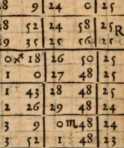 8 9 24 0 25
8 52 24 58 25 R
9 35 25 56 25
0 x 18 26 50 25
1 0 27 48 25
1 43 28 48 25
2 26 29 48 24
3 9 0 ♏ 48 24
3 52 1 48 23